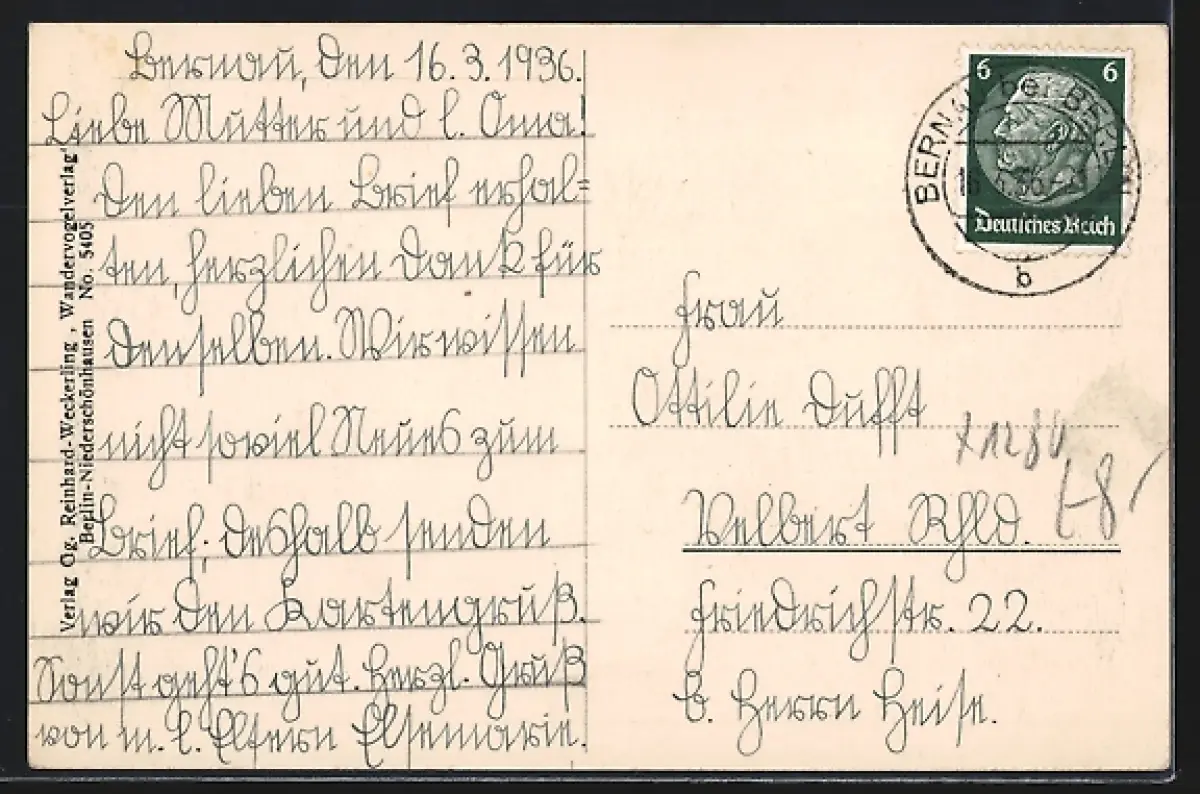 Bernau, den 16. 3. 1936.
Liebe Mutter und l. Oma!
Den lieben Brief erhal=
ten, herzlichen Dank für
denselben. Wir wissen
nicht soviel Neues zum
Brief; deshalb senden
wir den Kartengruß.
Sonst geht's gut. Herzl. Gruß
von m. l. Eltern Elsemarie.
Verlag Og. Reinhard-Weckerling, Wandervogelverlag
Berlin-Niederschönhausen No. 5405
6 6
Deutsches Reich
BERNAU bei BERLIN
b
Frau
Ottilie Dufft
Velbert Rhld.
Friedrichstr. 22.
b. Herrn Heise.